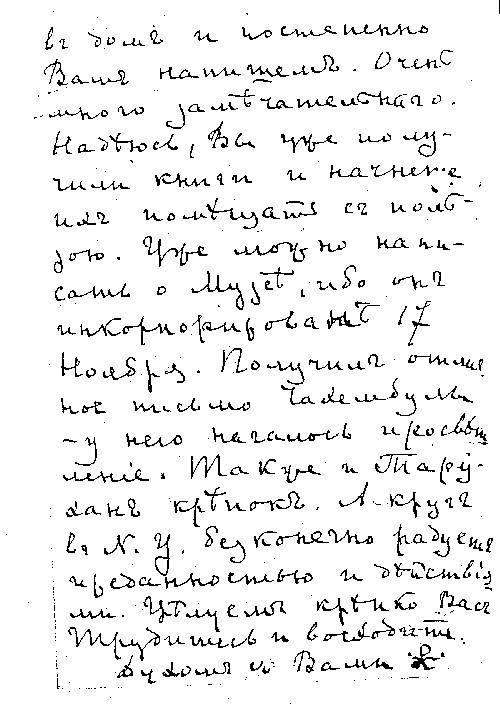 въ домъ и постепенно
Вамъ напишемъ. Очень
много замѣчательнаго.
Надѣюсь, Вы уже полу-
чили книги и начнете
ихъ помѣщать съ поль-
зою. Уже можно напи-
сать о Музеѣ, ибо онъ
инкорпорированъ 17
Ноября. Получилъ отлич
ное письмо
- у него началось просвѣт
ленiе. Также и Тару-
ханъ крѣпокъ. А кругъ
въ N. Y. безконечно радуетъ
преданностью и дѣйствiя
ми. Цѣлуемъ крѣпко Васъ
Трудитесь и восходите.
Духомъ съ Вами